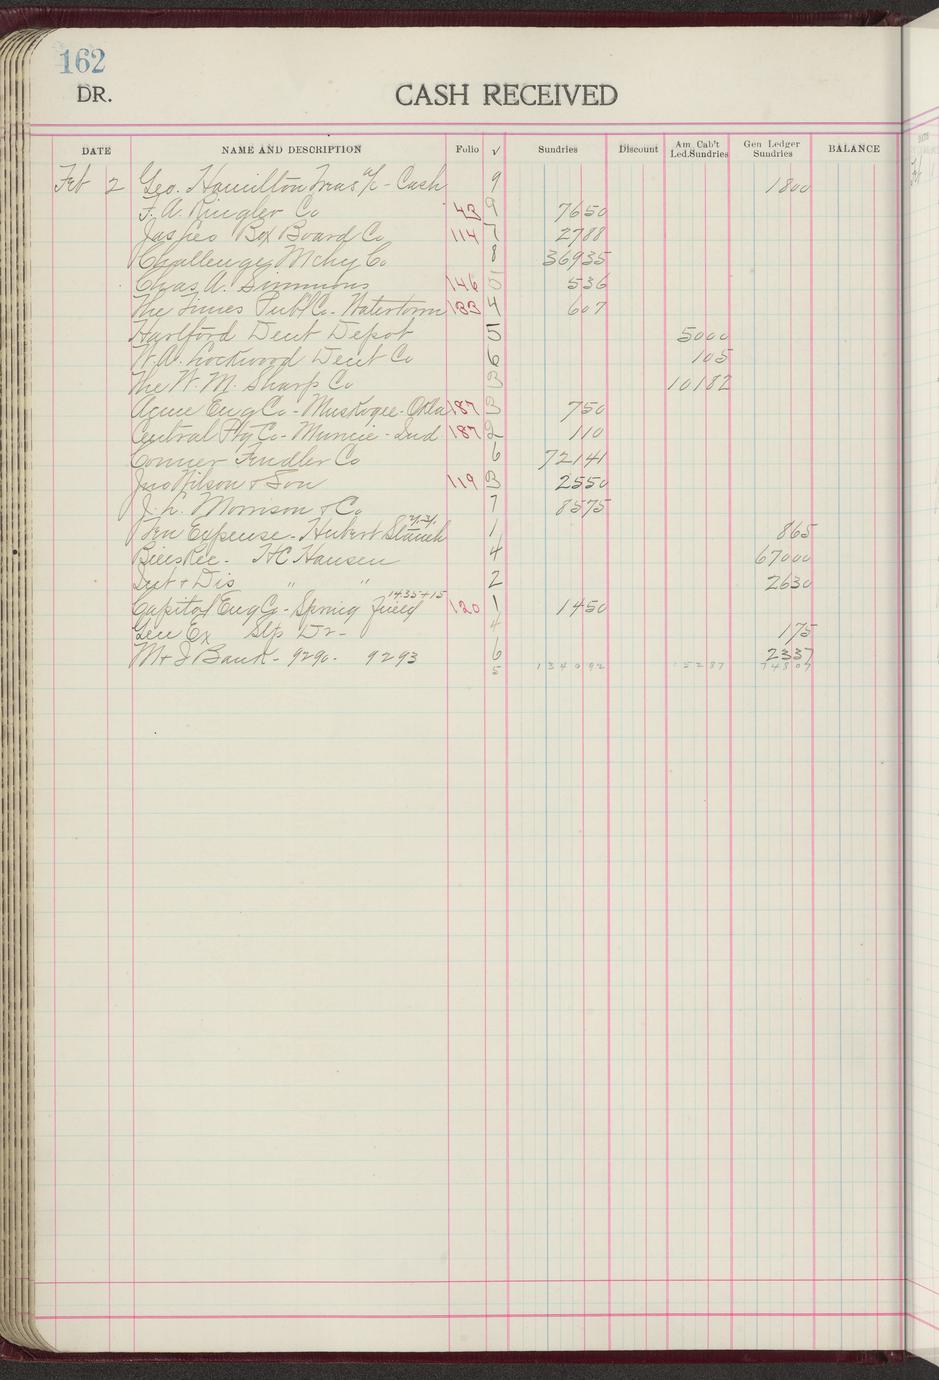 162
DR.
CASH RECEIVED
DATE NAME AND DESCRIPTION Folio √ Sundries Discount Am Cab't Led.Sundries Gen Ledger Sundries BALANCE
Feb 2 Geo. Hamilton Treas a/c - Cash 9 1800
F. A. Ringler Co 43 9 7650
Box Board Co 114 7 2788
Challenge Mchy Co 8 36935
Chas A. Simmons 146 0 536
The Times Publ Co - Watertown 133 4 607
Hartford Dent Depot 5 5000
W. A. Lockwood Dent Co 6 105
The W. M. Sharp Co 3 10182
Acme Eng Co - Muskogee - Okla 187 3 750
Central Ptg Co - Muncie - Ind 187 2 110
Conner Fendler Co 6 72141
Jno Wilson & Son 119 3 2550
J. L. Morrison & Co 7 8575
Gen Expense - Hubert 1 865
Bills Rec. H C Hansen 4 67000
Int & Dis " " 2 2630
1435+15
Capitol Eng Co - Spring 120 1 1450
Gen Ex Stps Dr - 4 175
M & I Bank - 9290 - 9293 6 2337
5 134092 15287 74807